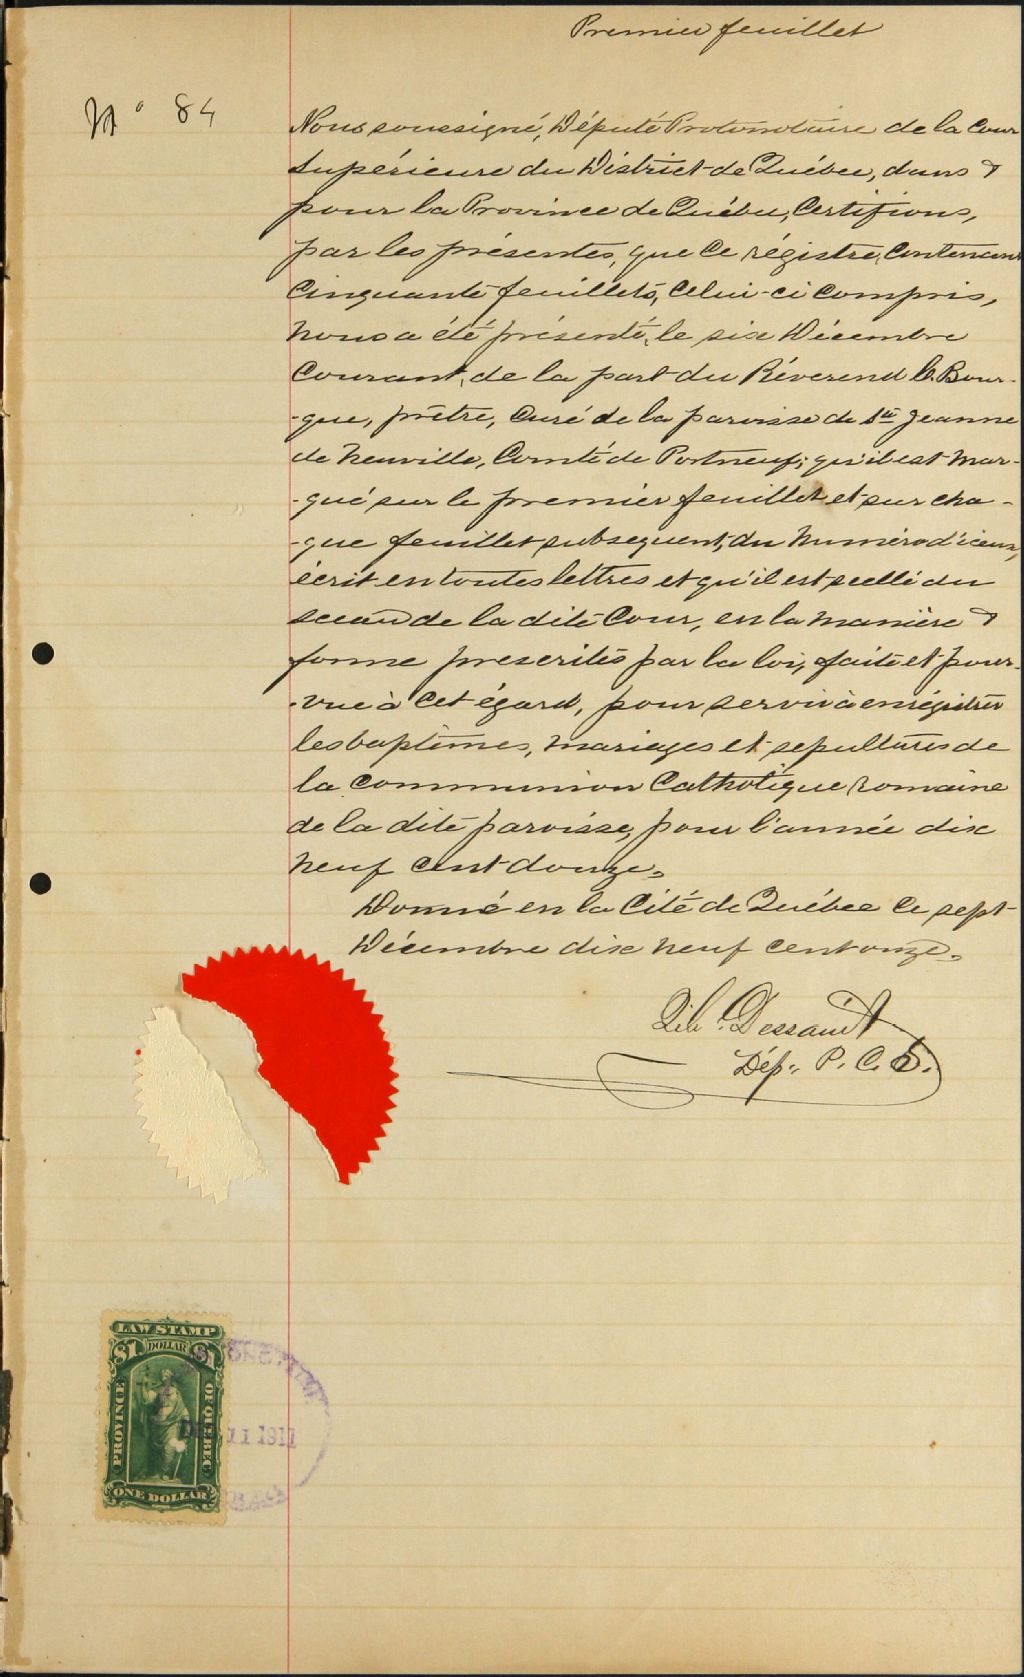 Premier feuillet
No 84
Nous soussigné, Député Protonotaire de la Cour
Supérieure du District de Québec, dans &
pour la Province de Québec, Certifions,
par les présentes, que ce régistre, Contenant
Cinquante feuillets, Celui-ci Compris,
nous a été présenté, le six Décembre
Courant, de la part du Révérend C. Bour-
-que, prêtre, Curé de la paroisse de Ste Jeanne
de Neuville, Comté de Portneuf; qu'il est mar-
-qué sur le premier feuillet et sur cha-
-que feuillet subséquent, du numéro d'iceux,
écrit en toutes lettres et qu'il est scellé du
sceau de la dite Cour, en la manière &
forme prescrites par la loi, faite et pour-
-vue à cet égard, pour servir à enrégistrer
les baptêmes, mariages et sepultures de
la Communion Catholique romaine
de la dite paroisse, pour l'année dix
neuf cent douze.
Donné en la Cité de Québec ce sept
Décembre dix neuf cent onze.
Dessault
Dép. P. C. S.
LAW STAMP
$1 DOLLAR $1
PROVINCE OF QUEBEC
11 1911
ONE DOLLAR